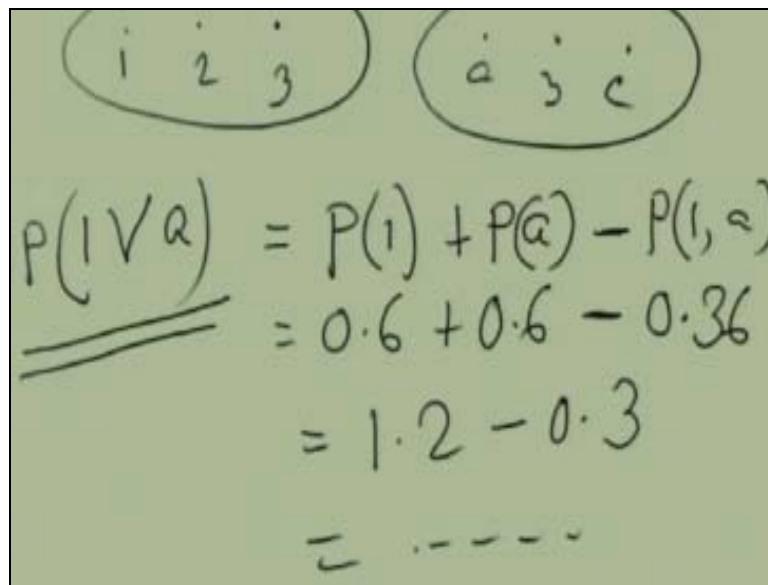 1 2 3 a 3 c
P(1 V a) = P(1) + P(a) - P(1, a)
= 0.6 + 0.6 - 0.36
= 1.2 - 0.3
= -----